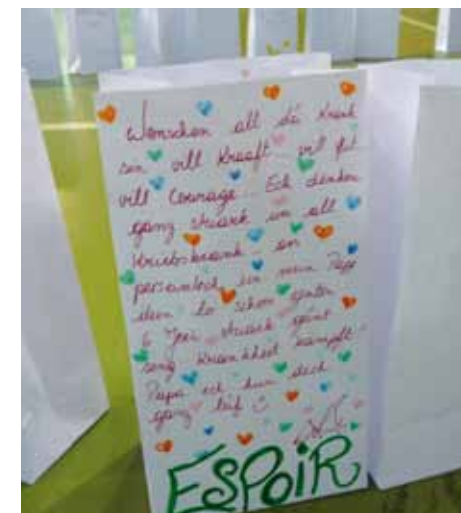 Wënschen all déi Krank
sen vill Kraaft vill
vill Courage. Ech denken
ganz staark un all
Kriibskrank an
perséinlech un mein Papa
deen lo schon
6 Joer staark géint
seng Krankheet kämpft
Papa ech hun dech
ganz léif
ESPOIR